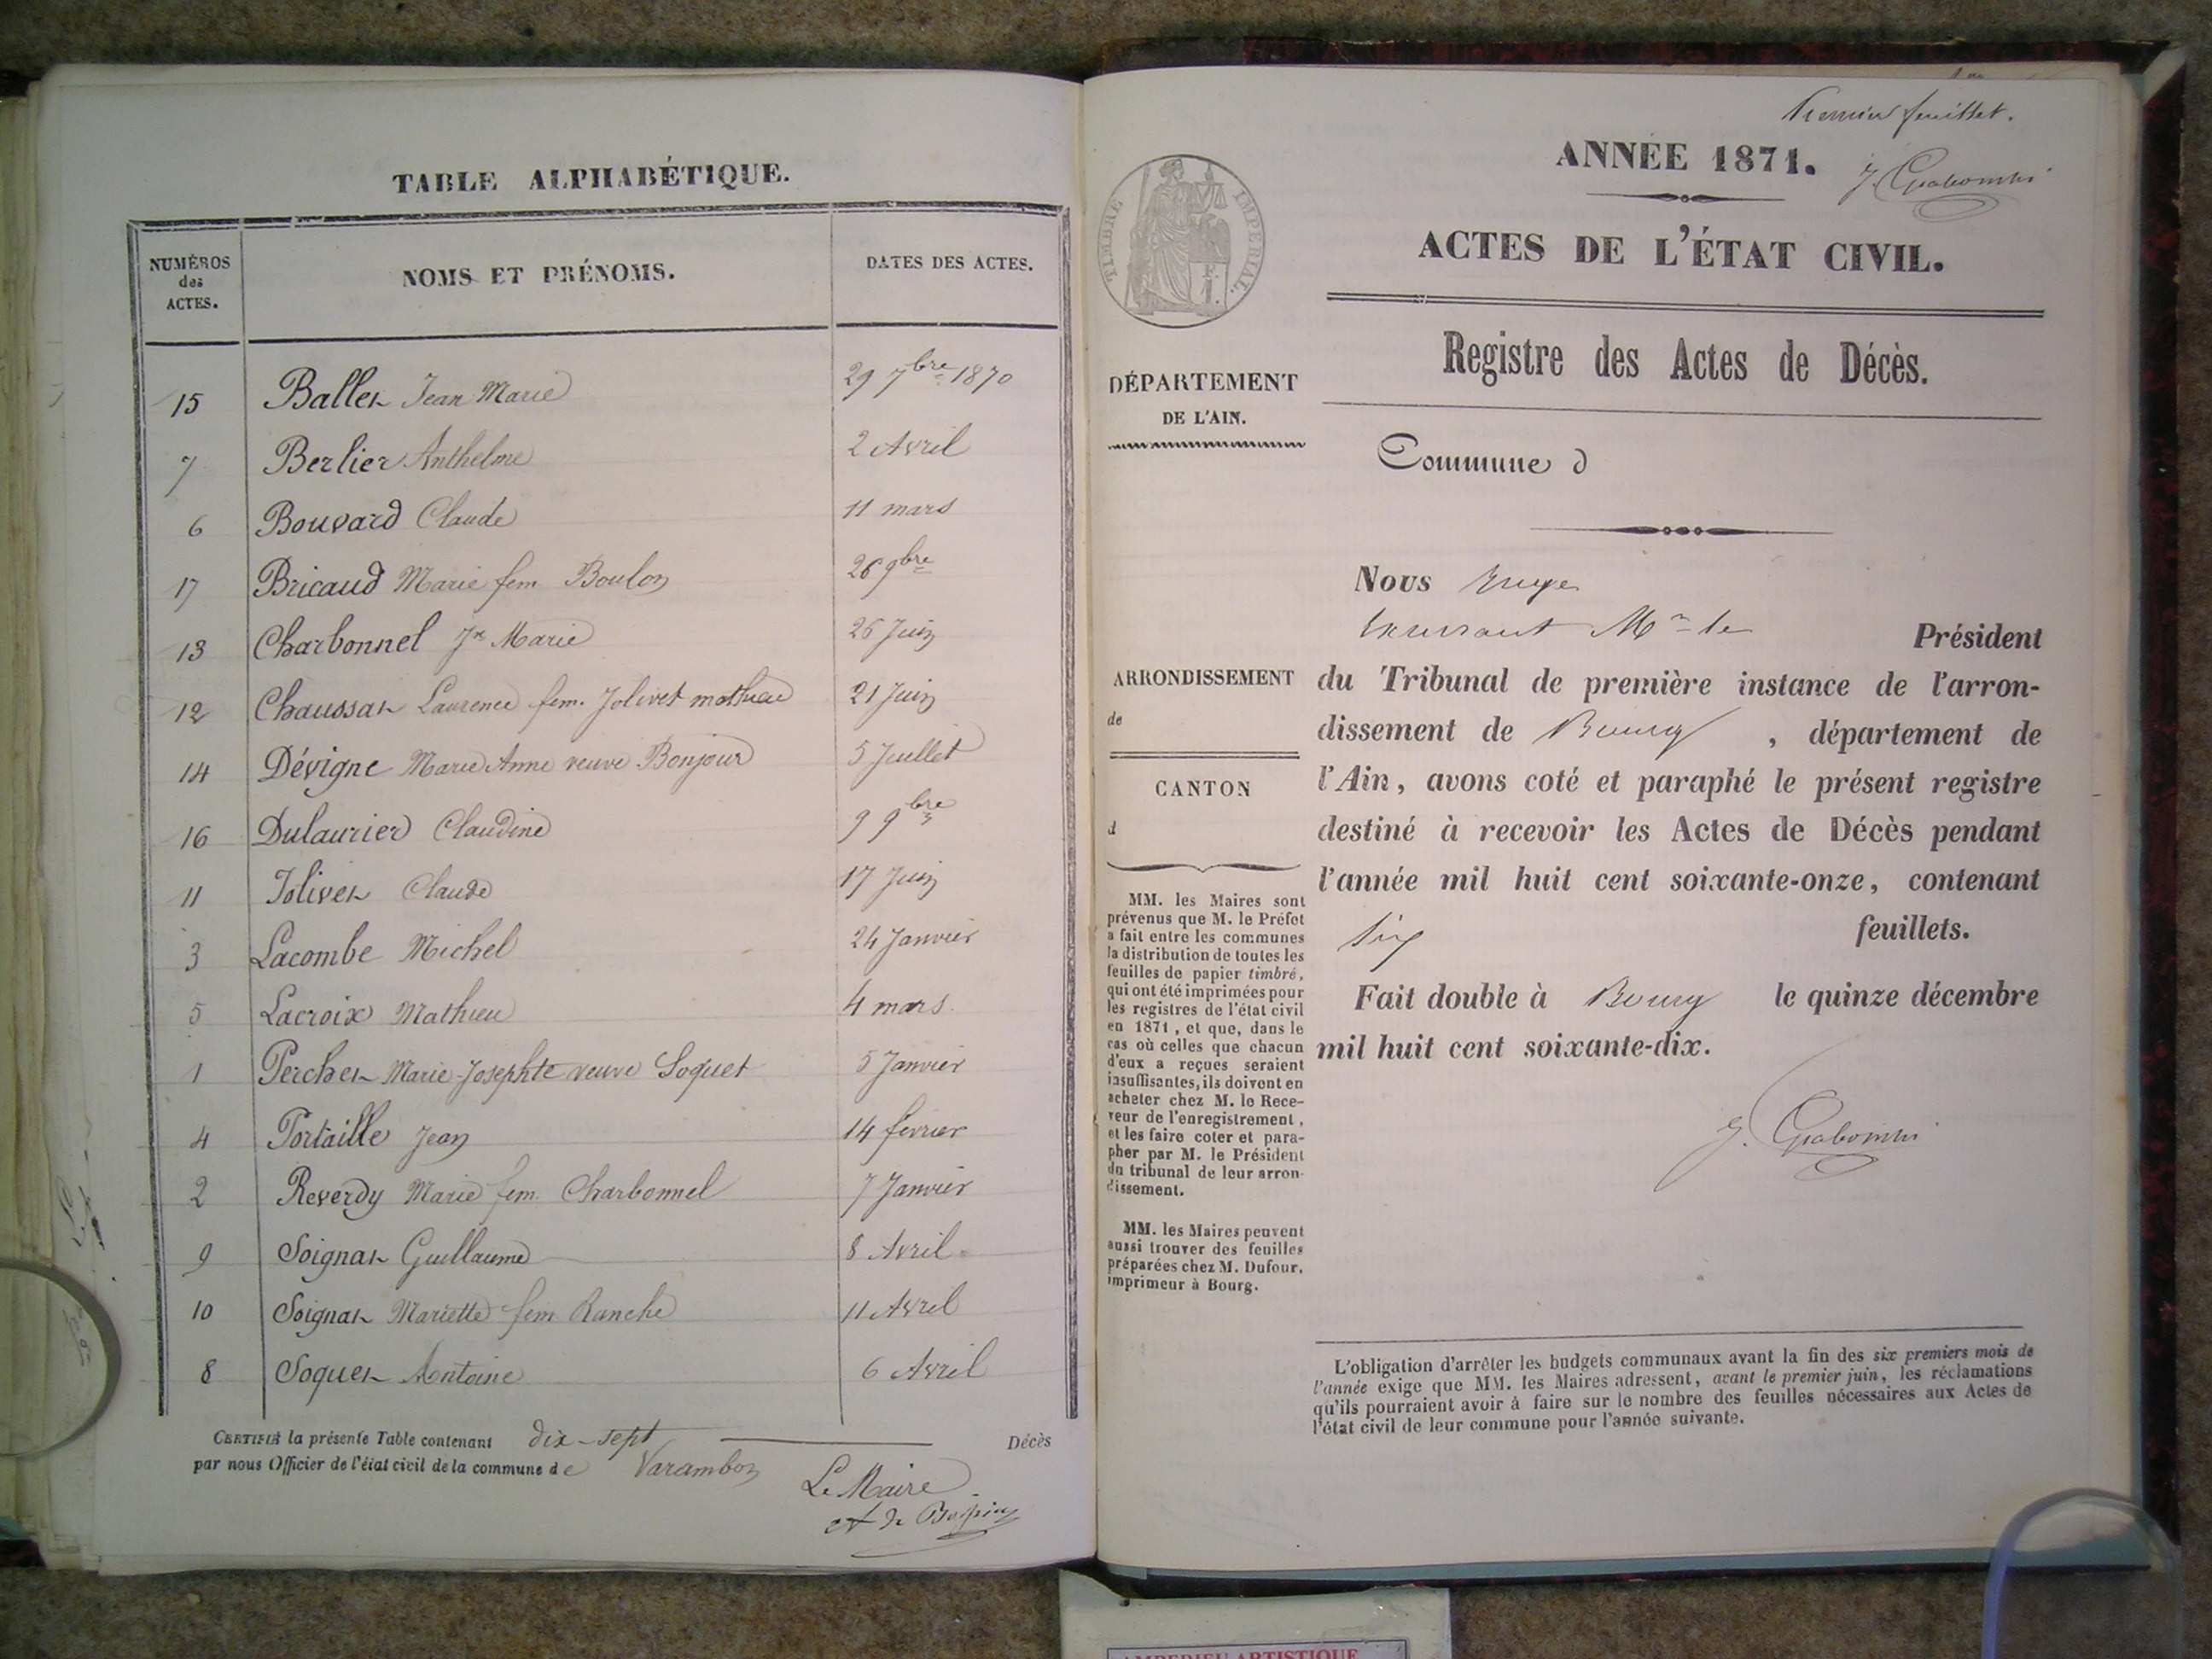 TABLE ALPHABÉTIQUE.
NUMÉROS des ACTES.
NOMS ET PRÉNOMS.
DATES DES ACTES.
15 Ballet Jean Marie 29 7bre 1870
7 Berlier Anthelme 2 Avril
6 Bouvard Claude 11 mars
17 Bricaud Marie fem Boulon 26 9bre
13 Charbonnel Jn Marie 26 Juin
12 Chaussat Laurence fem. Jolivet mathieu 21 Juin
14 Dévigne Marie Anne veuve Bonjour 5 Juillet
16 Dulaurier Claudine 9 9bre
11 Jolivet Claude 17 Juin
3 Lacombe Michel 24 Janvier
5 Lacroix Mathieu 4 mars
1 Perchet Marie-Josephte veuve Soquet 5 Janvier
4 Portaille Jean 14 février
2 Reverdy Marie fem. Charbonnel 7 Janvier
9 Soignat Guillaume 8 Avril
10 Soignat Mariette fem Ranche 11 Avril
8 Soquet Antoine 6 Avril
CERTIFIÉ la présente Table contenant dix-sept Décès
par nous Officier de l'état civil de la commune de Varambon
Le Maire
Premier feuillet.
ANNÉE 1871.
ACTES DE L'ÉTAT CIVIL.
Registre des Actes de Décès.
TIMBRE IMPERIAL.
1 F.
DÉPARTEMENT
DE L'AIN.
Commune d
ARRONDISSEMENT
de
CANTON
d
MM. les Maires sont
prévenus que M. le Préfet
a fait entre les communes
la distribution de toutes les
feuilles de papier timbré,
qui ont été imprimées pour
les registres de l'état civil
en 1871, et que, dans le
cas où celles que chacun
d'eux a reçues seraient
insuffisantes, ils doivent en
acheter chez M. le Rece-
veur de l'enregistrement,
et les faire coter et para-
pher par M. le Président
du tribunal de leur arron-
dissement.
MM. les Maires peuvent
aussi trouver des feuilles
préparées chez M. Dufour,
imprimeur à Bourg.
Nous Juge
Mr le Président
du Tribunal de première instance de l'arron-
dissement de Bourg, département de
l'Ain, avons coté et paraphé le présent registre
destiné à recevoir les Actes de Décès pendant
l'année mil huit cent soixante-onze, contenant
Six feuillets.
Fait double à Bourg le quinze décembre
mil huit cent soixante-dix.
L'obligation d'arrêter les budgets communaux avant la fin des six premiers mois de
l'année exige que MM. les Maires adressent, avant le premier juin, les réclamations
qu'ils pourraient avoir à faire sur le nombre des feuilles nécessaires aux Actes de
l'état civil de leur commune pour l'année suivante.